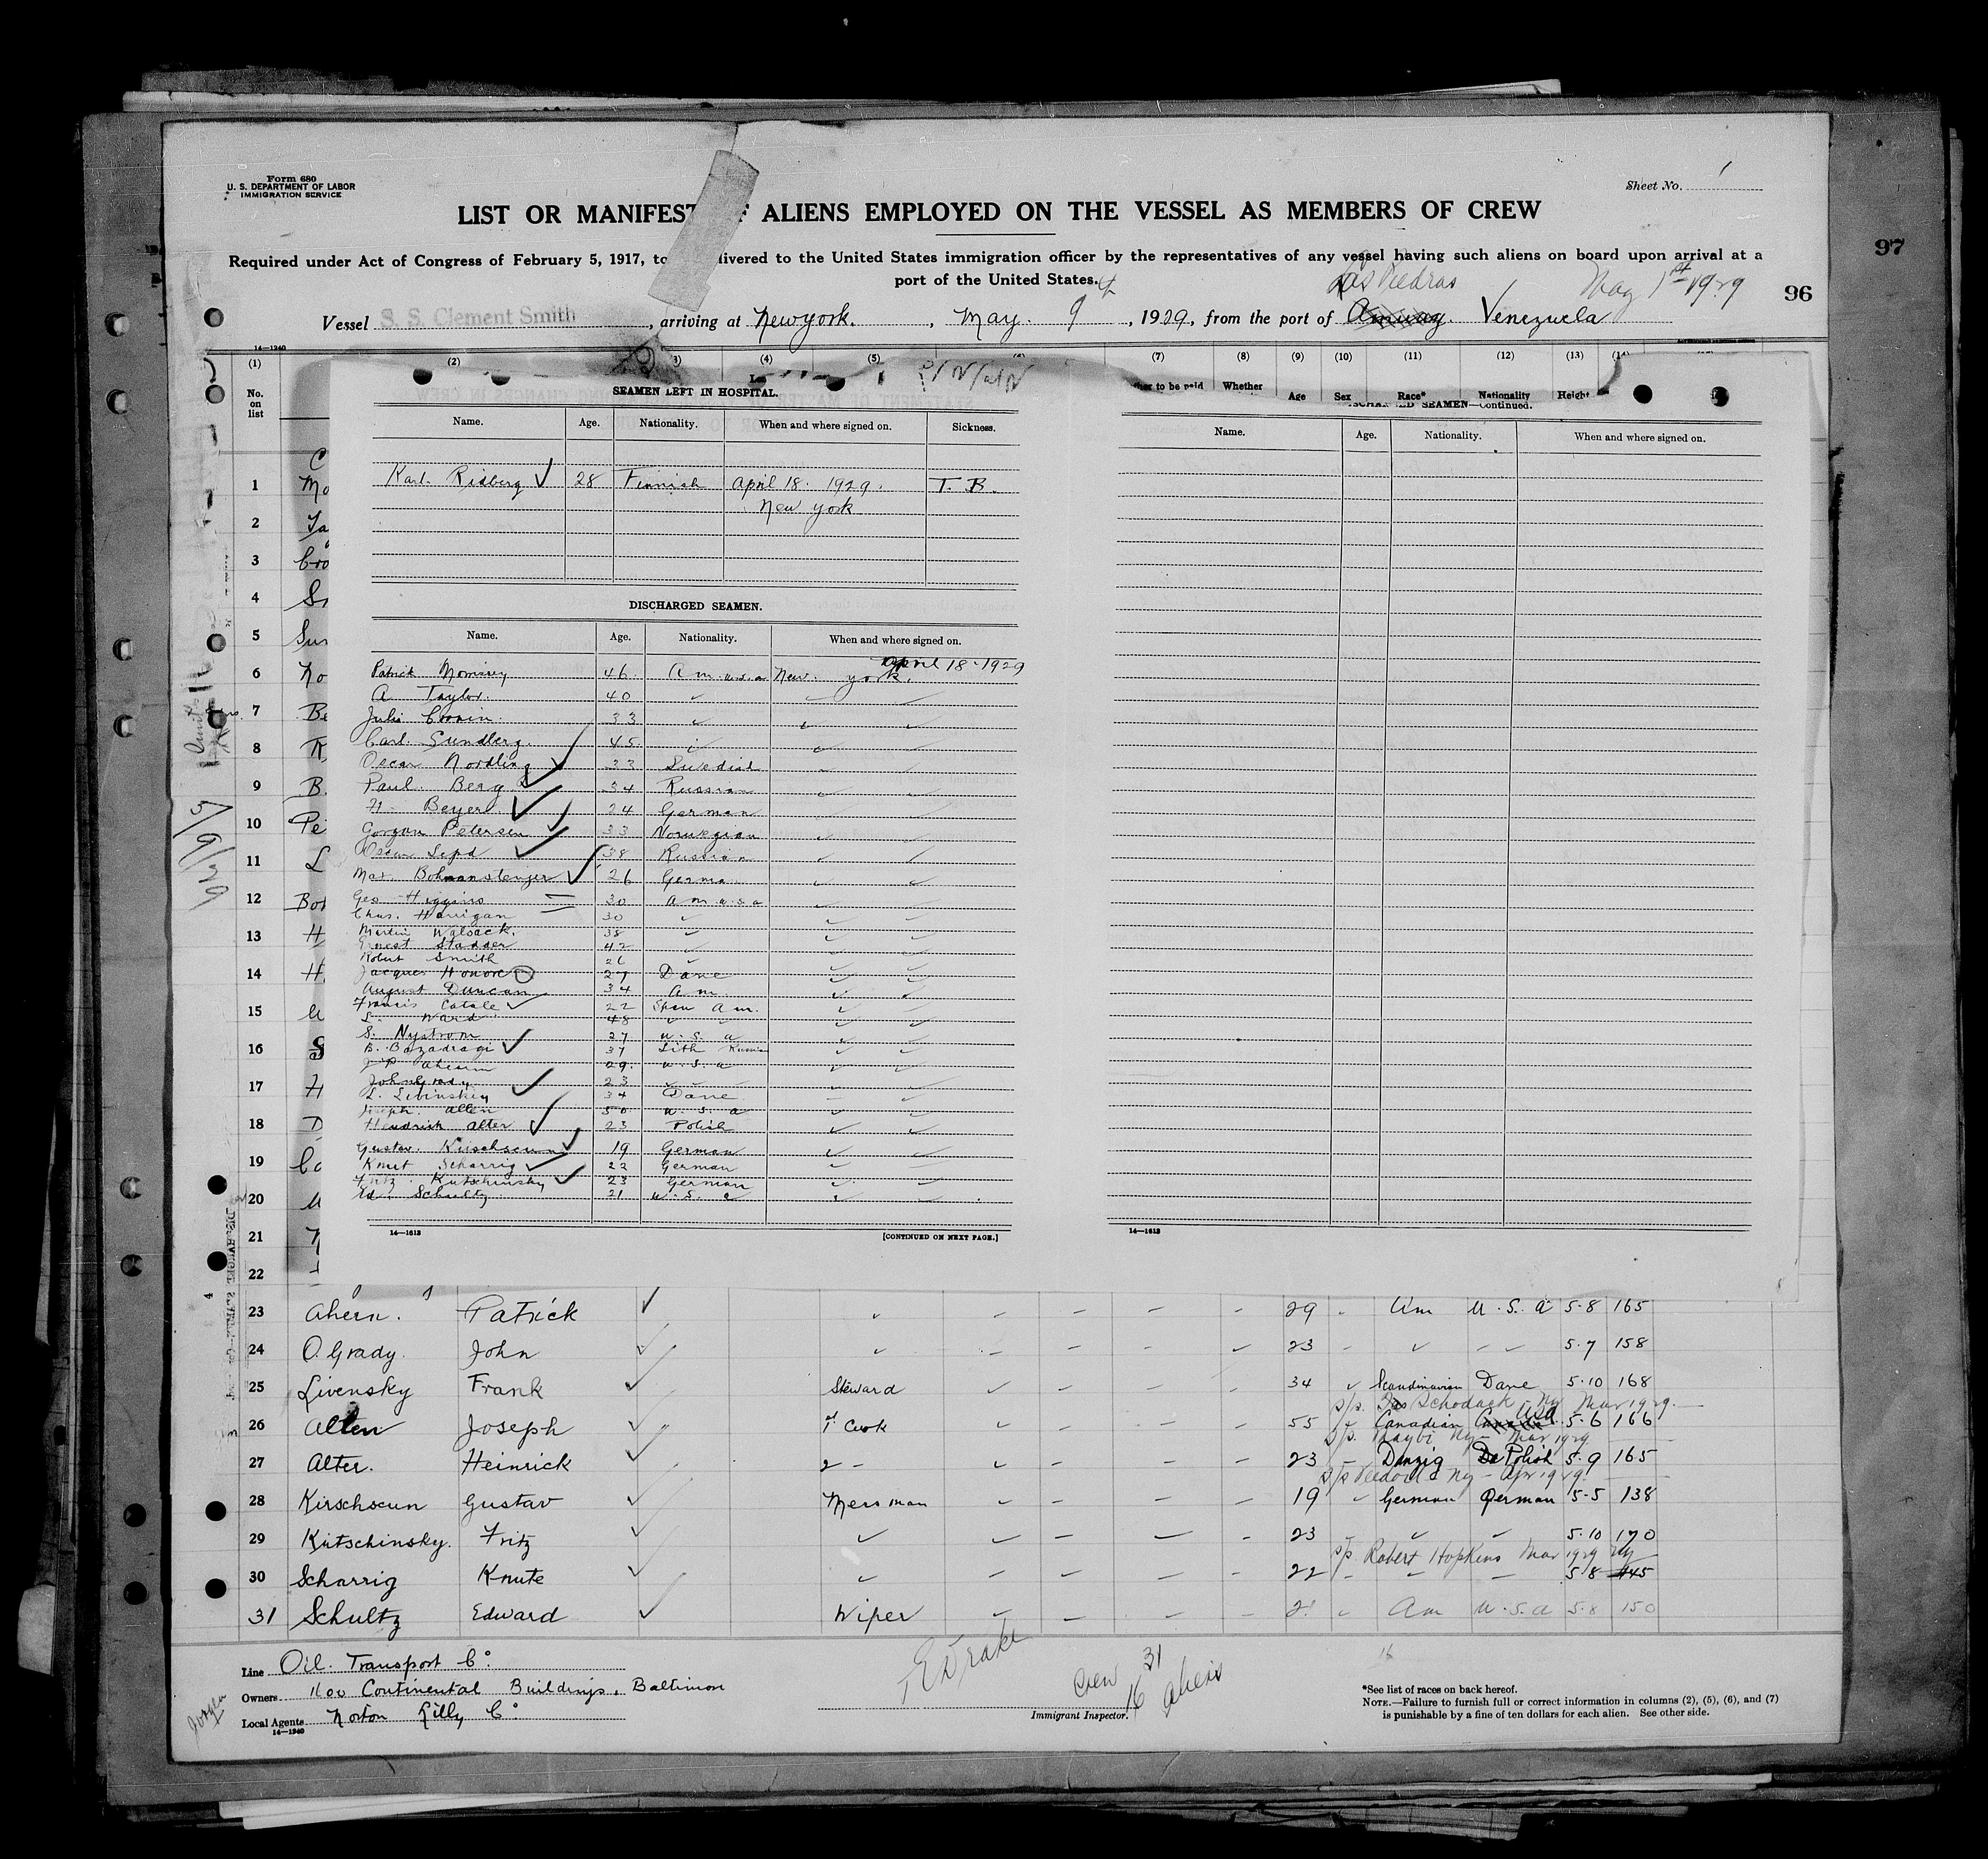 Form 680
U. S. DEPARTMENT OF LABOR
IMMIGRATION SERVICE
Sheet No. 1
LIST OR MANIFEST OF ALIENS EMPLOYED ON THE VESSEL AS MEMBERS OF CREW
Required under Act of Congress of February 5, 1917, to livered to the United States immigration officer by the representatives of any vessel having such aliens on board upon arrival at a
port of the United States.
Las Piedras May 1st 1929
97
96
Vessel S. S. Clement Smith, arriving at New york., May. 9, 1929, from the port of Venezuela
14—1240
(1) (2) (3) (4) (5) (7) (8) (9) (10) (11) (12) (13) (14)
No. on list
Whether Age Sex Race* Nationality Height
SEAMEN LEFT IN HOSPITAL.
Name. Age. Nationality. When and where signed on. Sickness.
Karl. Ridberg ✓ 28 Finnish April 18. 1929. T. B.
New york
DISCHARGED SEAMEN.
Name. Age. Nationality. When and where signed on.
April 18-1929
Patrick Morrisey 46. Am. u.s.a New. york.
A Taylor. 40 ✓ ✓ ✓
Julis Cronin. 33 ✓ ✓ ✓
Carl. Sundberg. 45 ✓ ✓ ✓
Oscar Nordling ✓ 33 Swedish
Paul. Berg ✓ 34 Russian
H. Beyer ✓ 24 German
Gorgan Petersen ✓ 33 Norwegian
Oscar Sepd ✓ 38 Russian
Max. Bohmanstenger ✓ 26 Germa
Geo Higgins 30 Am. u.s.a
Chas. Harrigan 30 ✓
Martin Walsack. 38 ✓
Ernest Stadder 42 ✓
Robert Smith 26 ✓
Jacques Honore 27 Dane
August Duncan 34 Am
Francis Catale ✓ 22 Span Am.
L. Ward 48
S. Nystrom 27 u. S. a
B. Bazadragi ✓ 37 Lith
J P Ahern 29. u. S. a
John Grady 23
L. Livinskey ✓ 34 Dane
Joseph. Allen 50 u. S. a
Hendrick Alter ✓ 23 Polish
Gustav. Kirschseun ✓ 19 German
Knut Scharrig ✓ 22 German
Fritz. Kutschinsky ✓ 23 German
Ed. Schultz 21 u. S. a
14—1613
[CONTINUED ON NEXT PAGE.]
DISCHARGED SEAMEN—Continued.
Name. Age. Nationality. When and where signed on.
14—1613
1
2
3
4
5
6
7
8
9
10
11
12
13
14
15
16
17
18
19
20
21
22
5/9/29
23 Ahern. Patrick ✓ 29 Am U. S. a 5-8 165
24 O. Grady. John ✓ 23 5-7 158
25 Livensky Frank ✓ Steward 34 ✓ Scandinavian Dane 5-10 168
S/S. Schodack Ny Mar 1929.
26 Allen Joseph ✓ 1st Cook 55 Canadian USA 5-6 166
Ny - Mar 1929
27 Alter. Heinrick ✓ 2 - 23 Danzig Polish 5-9 165
Ny - Apr 1929
28 Kirschseun Gustav ✓ Messman 19 ✓ German German 5-5 138
29 Kutschinsky. Fritz ✓ ✓ 23 ✓ ✓ 5-10 170
S/S. Robert Hopkins Mar 1929 Ny
30 Scharrig Knute ✓ ✓ 22 5-8 145
31 Schultz Edward ✓ Wiper 21 Am U. S. a 5-8 150
Line Oil. Transport Co.
Owners 1100 Continental Buildings, Baltimor
Local Agents Norton Lilly Co.
14—1240
E Drake
Crew 31
16 aliens
Immigrant Inspector.
*See list of races on back hereof.
NOTE.—Failure to furnish full or correct information in columns (2), (5), (6), and (7)
is punishable by a fine of ten dollars for each alien. See other side.